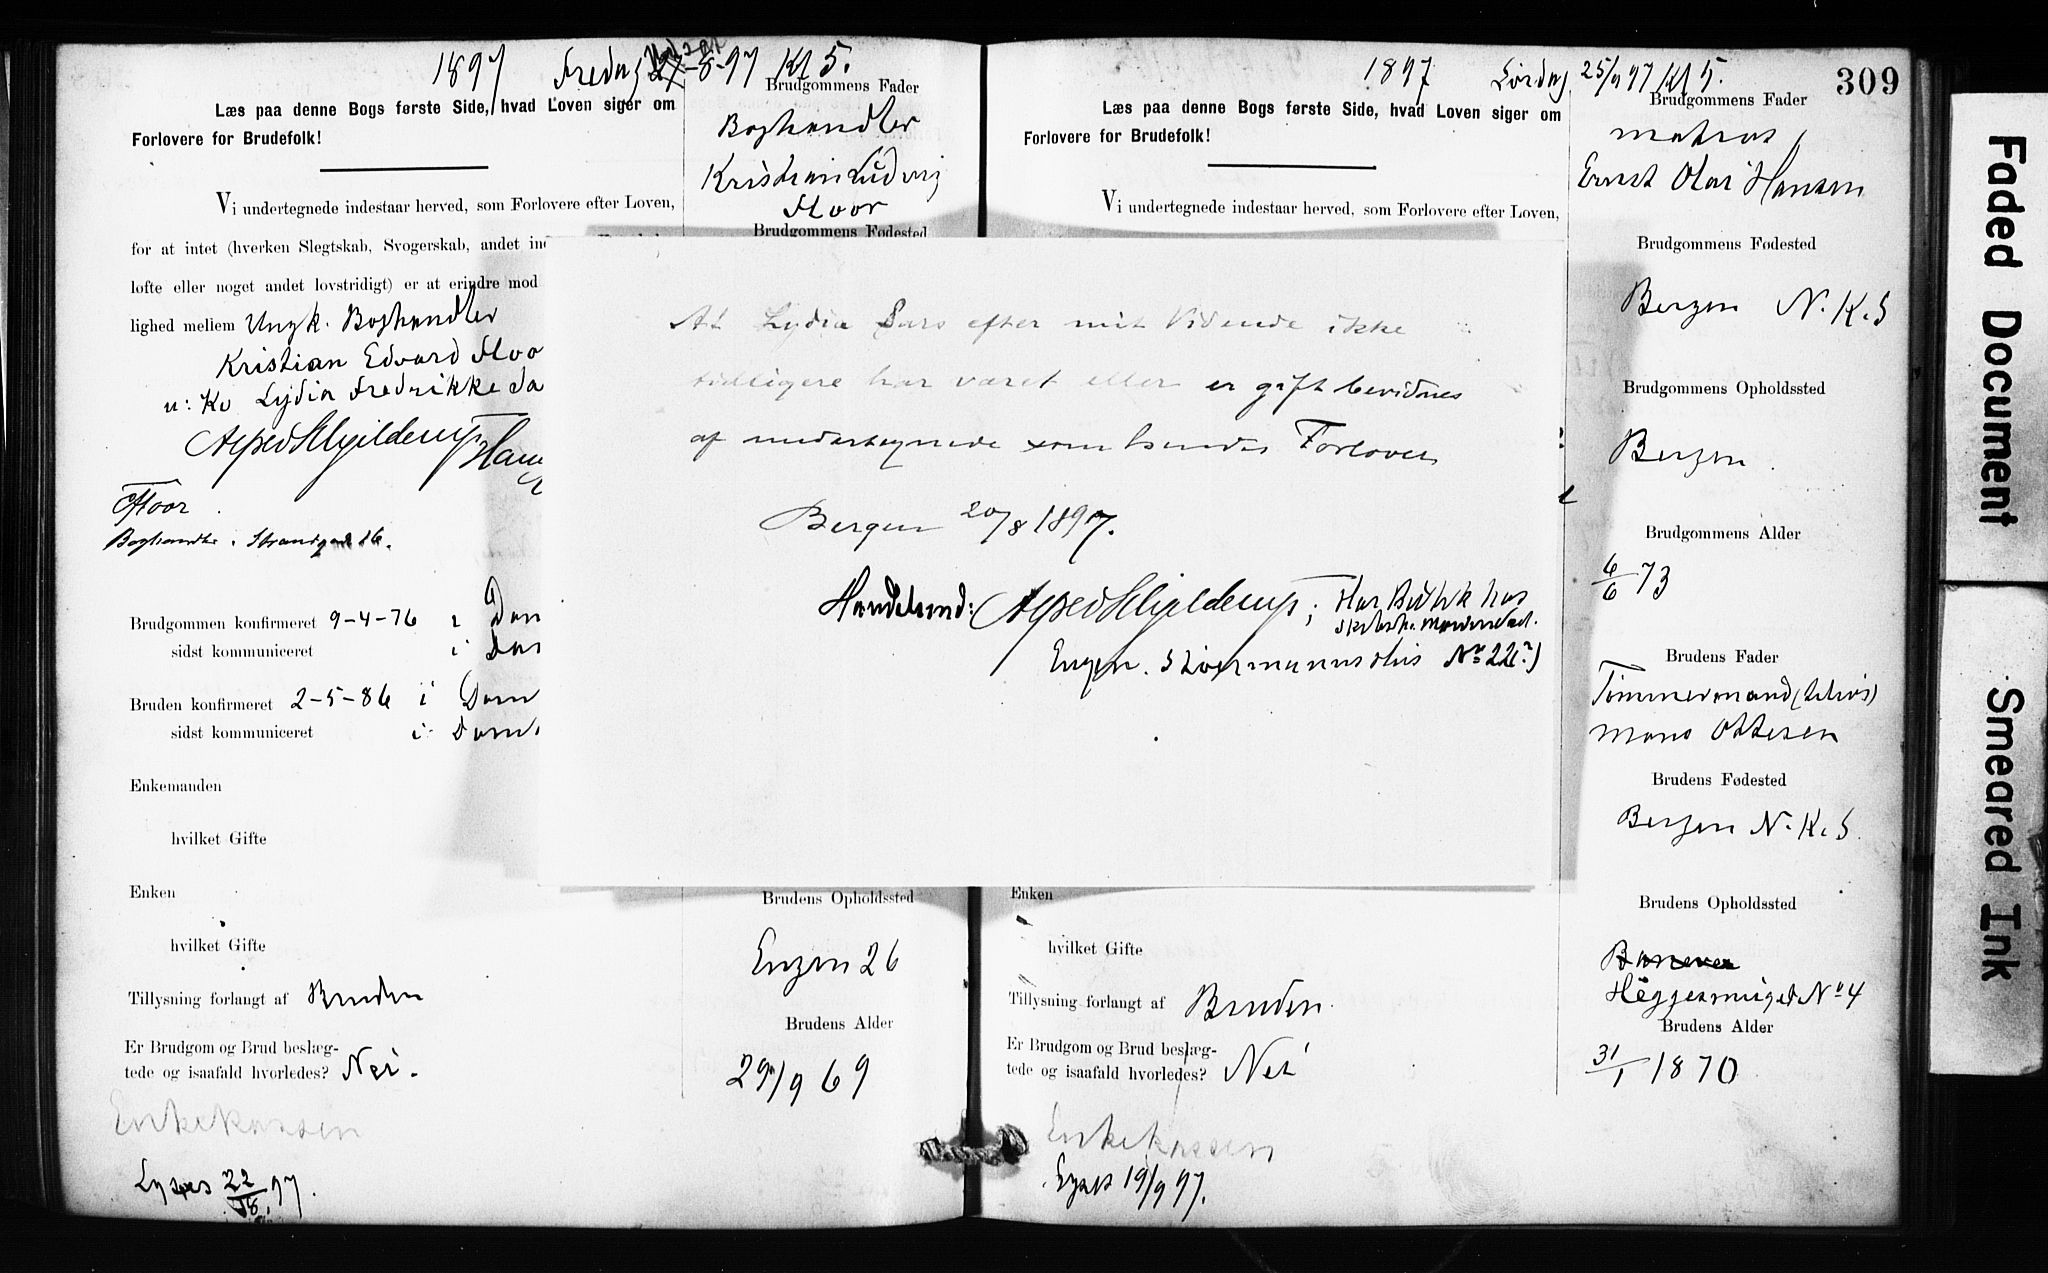 1897 Fredag 27-8-97 Kl 5.
Læs paa denne Bogs første Side, hvad Loven siger om
Forlovere for Brudefolk!
Vi undertegnede indestaar herved, som Forlovere efter Loven,
for at intet (hverken Slegtskab, Svogerskab, andet
løfte eller noget andet lovstridigt) er at erindre mod
lighed mellem Ungk. Boghandler
Kristian Edvard Floo
u: Kv Lydia Fredrikke Sa
Alfred Hjelderup
Floor
Boghandler. Strandgad 16.
Brudgommen konfirmeret 9-4-76 i Dom
sidst kommuniceret i Dom
Bruden konfirmeret 2-5-86 i Dom
sidst kommuniceret i Dom
Enkemanden
hvilket Gifte
Enken
hvilket Gifte
Tillysning forlangt af Bruden
Er Brudgom og Brud beslæg-
tede og isaafald hvorledes? Nei.
Enkekassen
Lyses 22/8 97.
Brudgommens Fader
Boghandler
Kristian Ludvig
Floor
Brudgommens Fødested
Brudens Opholdssted
Engen 26
Brudens Alder
29/9 69
At Lydia Sars efter mit Vidende ikke
tidligere har været eller er gift bevidnes
af undertegnede som hendes Forlover
Bergen 20/8 1897.
Handelsmd: Alfred Hjelderup; Har Butik hos
Engen. Stoermanns Hus No 22.)
1897 Lørdag 25/9 97 Kl 5.
309
Læs paa denne Bogs første Side, hvad Loven siger om
Forlovere for Brudefolk!
Vi undertegnede indestaar herved, som Forlovere efter Loven,
Enken
hvilket Gifte
Tillysning forlangt af Bruden.
Er Brudgom og Brud beslæg-
tede og isaafald hvorledes? Nei
Enkekassen
Lyses 19/9 97.
Brudgommens Fader
matros
Ernst Olai Hansen
Brudgommens Fødested
Bergen N. K. S
Brudgommens Opholdssted
Bergen.
Brudgommens Alder
6/6 73
Brudens Fader
Tømmermand
Mons Ottesen
Brudens Fødested
Bergen N. K. S.
Brudens Opholdssted
Heggesmuget No 4
Brudens Alder
31/1 1870
Faded Document
Smeared Ink